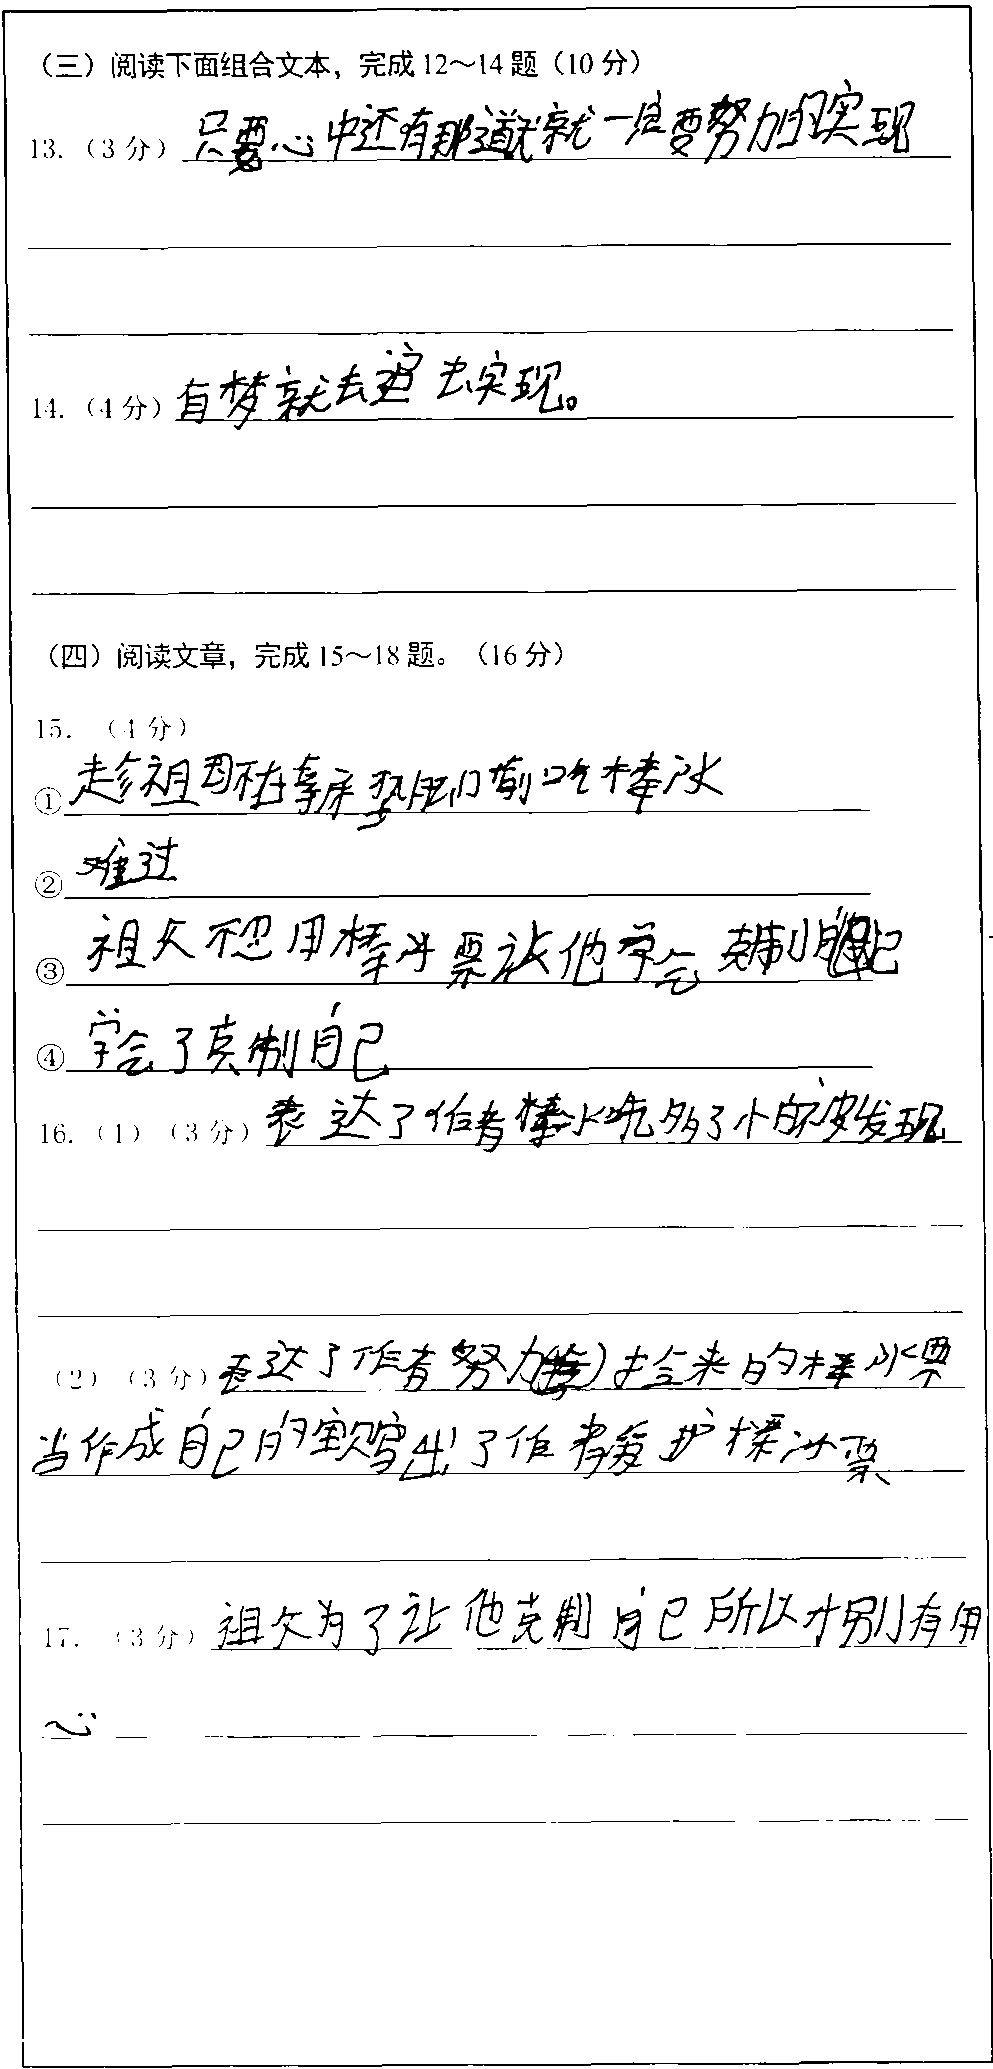 （三）阅读下面组合文本，完成12～14题（10分）
13.（3分）只要心中还有那道就一定要努力的实现
14.（4分）有梦就去追去实现。
（四）阅读文章，完成15～18题。（16分）
15.（4分）
①趁祖母在 门前吃棒冰
②难过
③祖父不想用棒冰票让他学会克制自己
④学会了克制自己
16.（1）（3分）表达了作者棒冰吃多了小 被发现
（2）（3分）表达了作者努力 捡来的棒冰票
当作成自己的宝贝写出了作者爱护棒冰票
17.（3分）祖父为了让他克制自己所以才别有用
心